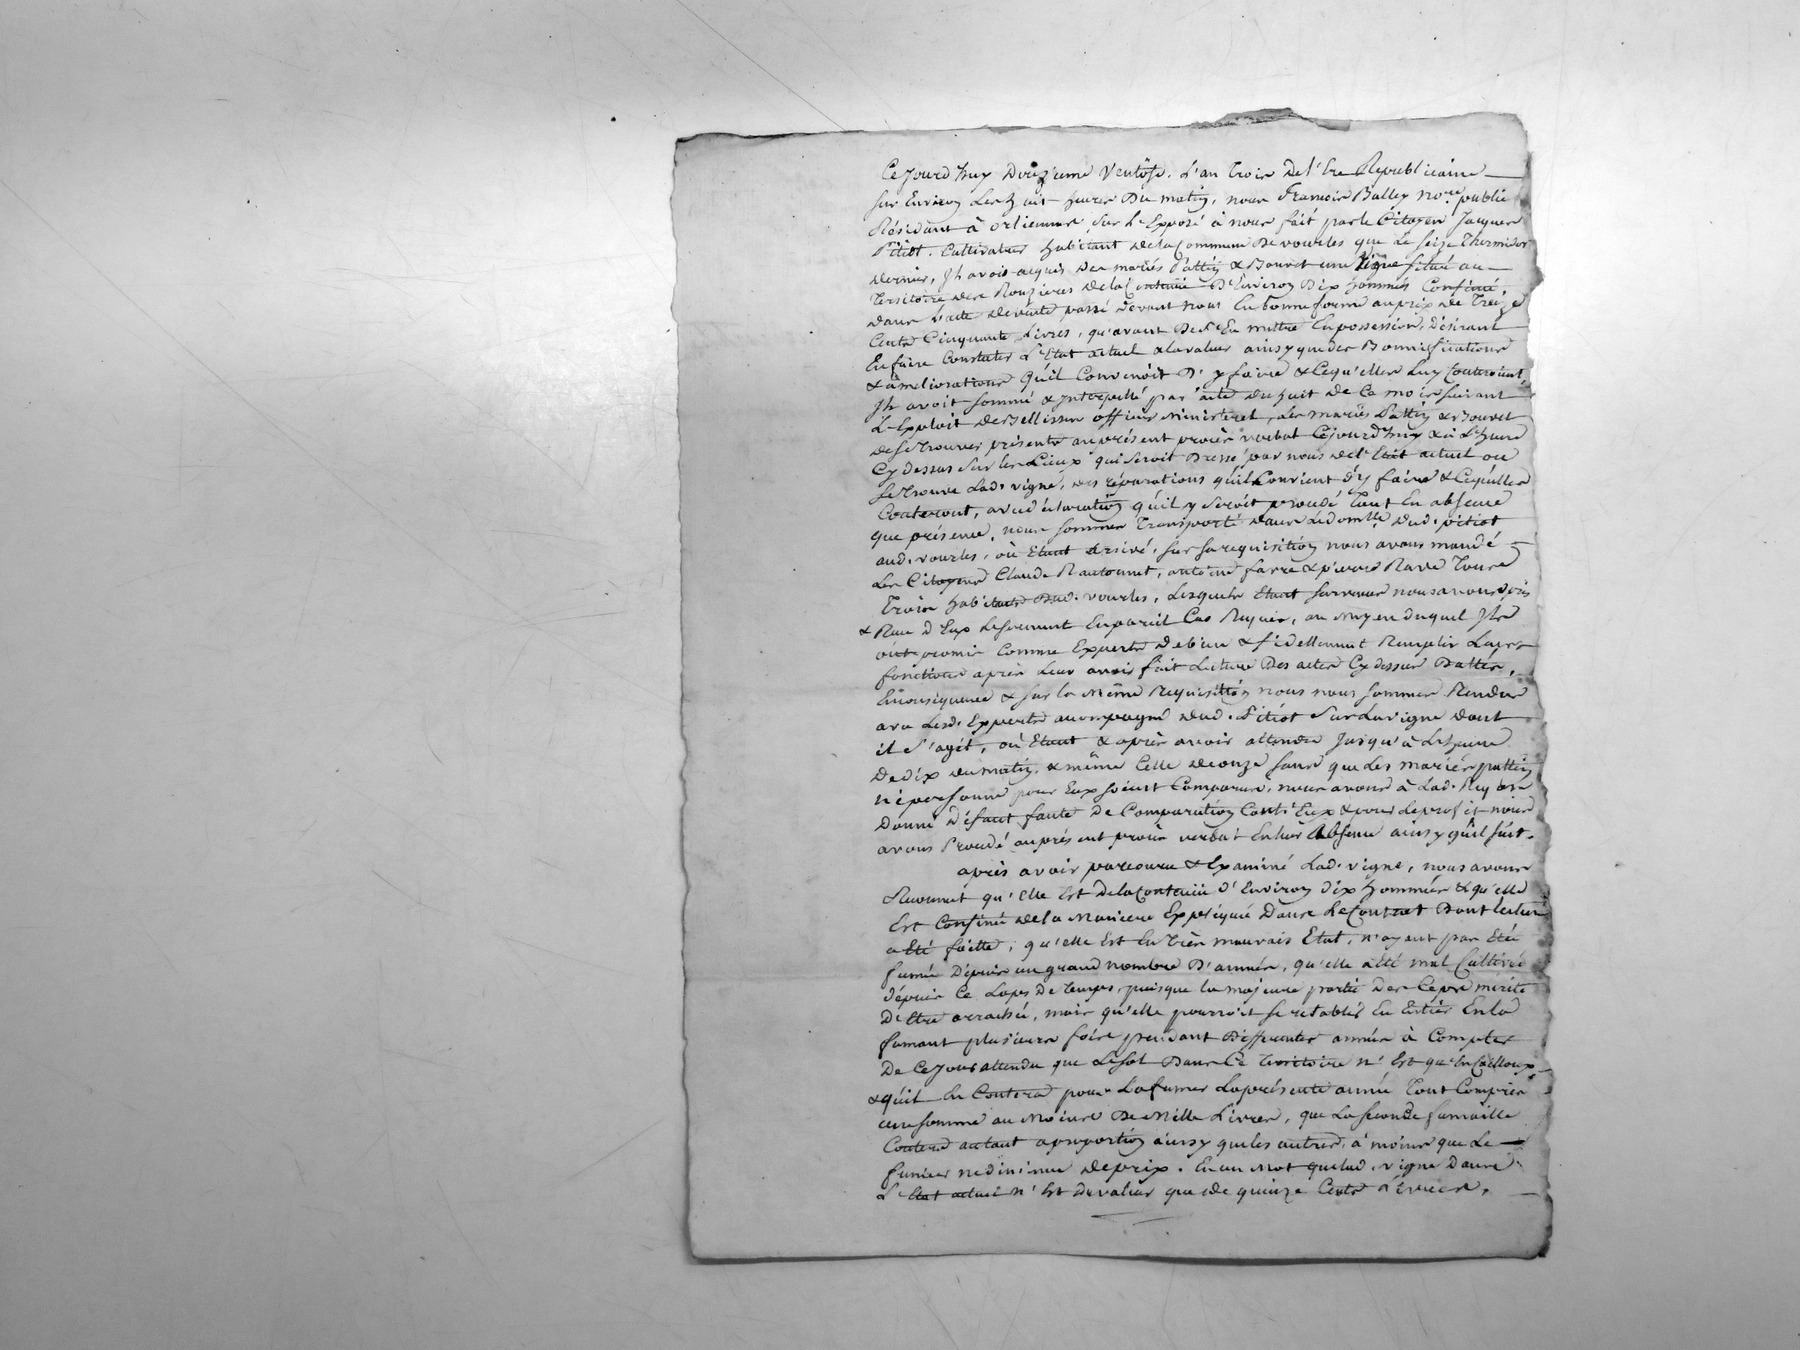 Ce Jourd'huy Douzieme Ventôse. L'an Trois De l'Ere Républicaine
sur Environ Les huit heures Du matin, nous François Balley no.re public
Résidant à orlienas, sur L'Exposé à nous fait par le Citoyen Jacques
Pitiot. Cultivateur habitant de la Commune De vourles que Le seize Thermidor
dernier, Jl avoit acquis des mariés Pattin & Bouvet une Vigne située au
Territoire des Rouzieres de la Contenüe D'Environ Dix hommés Confinée,
dans L'acte de vente passé devant nous En bonne forme au prix de Treize
Cents Cinquante Livres, qu'avant De s'En mettre En possession, Désirant
En faire Constater L'Etat actuel & la valeur ainsy que des Bonnifications
& améliorations Qu'il Convenoit D'y faire & Ce qu'elles Luy Couteroient,
Jl avoit sommé & Interpellé par acte du huit de Ce mois suivant
L'Exploit de Bellissen officier Ministeriel, Les mariés Pattin & Bouvet
de se Trouver présents au présent procès verbal Cejourd'huy & à L'heure
Cy dessus sur les Lieux qui seroit Dressé par nous de l'Etat actuel ou
se Trouve Lad. vigne, des réparations qu'il Convient d'y faire & Ce qu'elles
Couteront, avec déclaration qu'il y seroit procédé Tant En absence
que présence, nous sommes Transporté dans Le domlle dud. pitiot
aud. vourles, où Etant Arrivé, sur sa requisition nous avons mandé
Les Citoyens Claude Ratonnet, antoine favre & pierre Rave Tous
Trois habitants Dud. vourles, Lesquels Etant survenus nous avons pris
& Recu d'Eux Le serment En pareil Cas Requis, au Moyen duquel Jls
ont promis Comme Experts De bien & fidellement Remplir Leurs
fonctions après Leur avoir fait Lecture Des actes Cy dessus Dattés,
En conséquence & sur la Même Requisition nous nous sommes Rendus
avec Lesd. Experts accompagné dud. Pitiot sur La vigne dont
il s'agit, où Etant & après avoir attendu Jusqu'à L'heure
De dix du matin, & même Celle de onze sans que Les mariés pattin
ni personne pour Eux soient Comparus, nous avons à Lad. Req.on
Donné Défaut faute De Comparution Cont'Eux & pour Le profit nous
avons Procédé au présent procès verbal En leur Absence ainsy qu'il suit.
après avoir parcouru & Examiné Lad. vigne, nous avons
Reconnut qu'elle Est De la Contenüe D'Environ Dix hommés & qu'elle
Est Confinée de la Maniere Expliquée Dans Le Contrat Dont lecture
a Eté faitte, qu'elle Est En très mauvais Etat, n'ayant pas Eté
fumée Depuis un grand nombre D'années, qu'elle a été mal Cultivée
Depuis Ce Laps De temps, puisque la majeure partie Des Ceps mérite
D'Etre arrachée, mais qu'elle pourroit se retablir En Entier En la
fumant plusieurs fois pendant Differentes années à Compter
De Ce Jour attendu que Le sol Dans Ce Territoire n'Est qu'En Cailloux
& qu'il En Coutera pour La fumer La présente année Tout Compris
une somme au Moins De Mille Livres, que La seconde fumaille
Coutera autant à proportion ainsy que les autres, à moins que Le
fumier ne diminue de prix. En un Mot que Lad. vigne Dans
L'Etat actuel n'Est De valeur que De quinze Cents Livres.